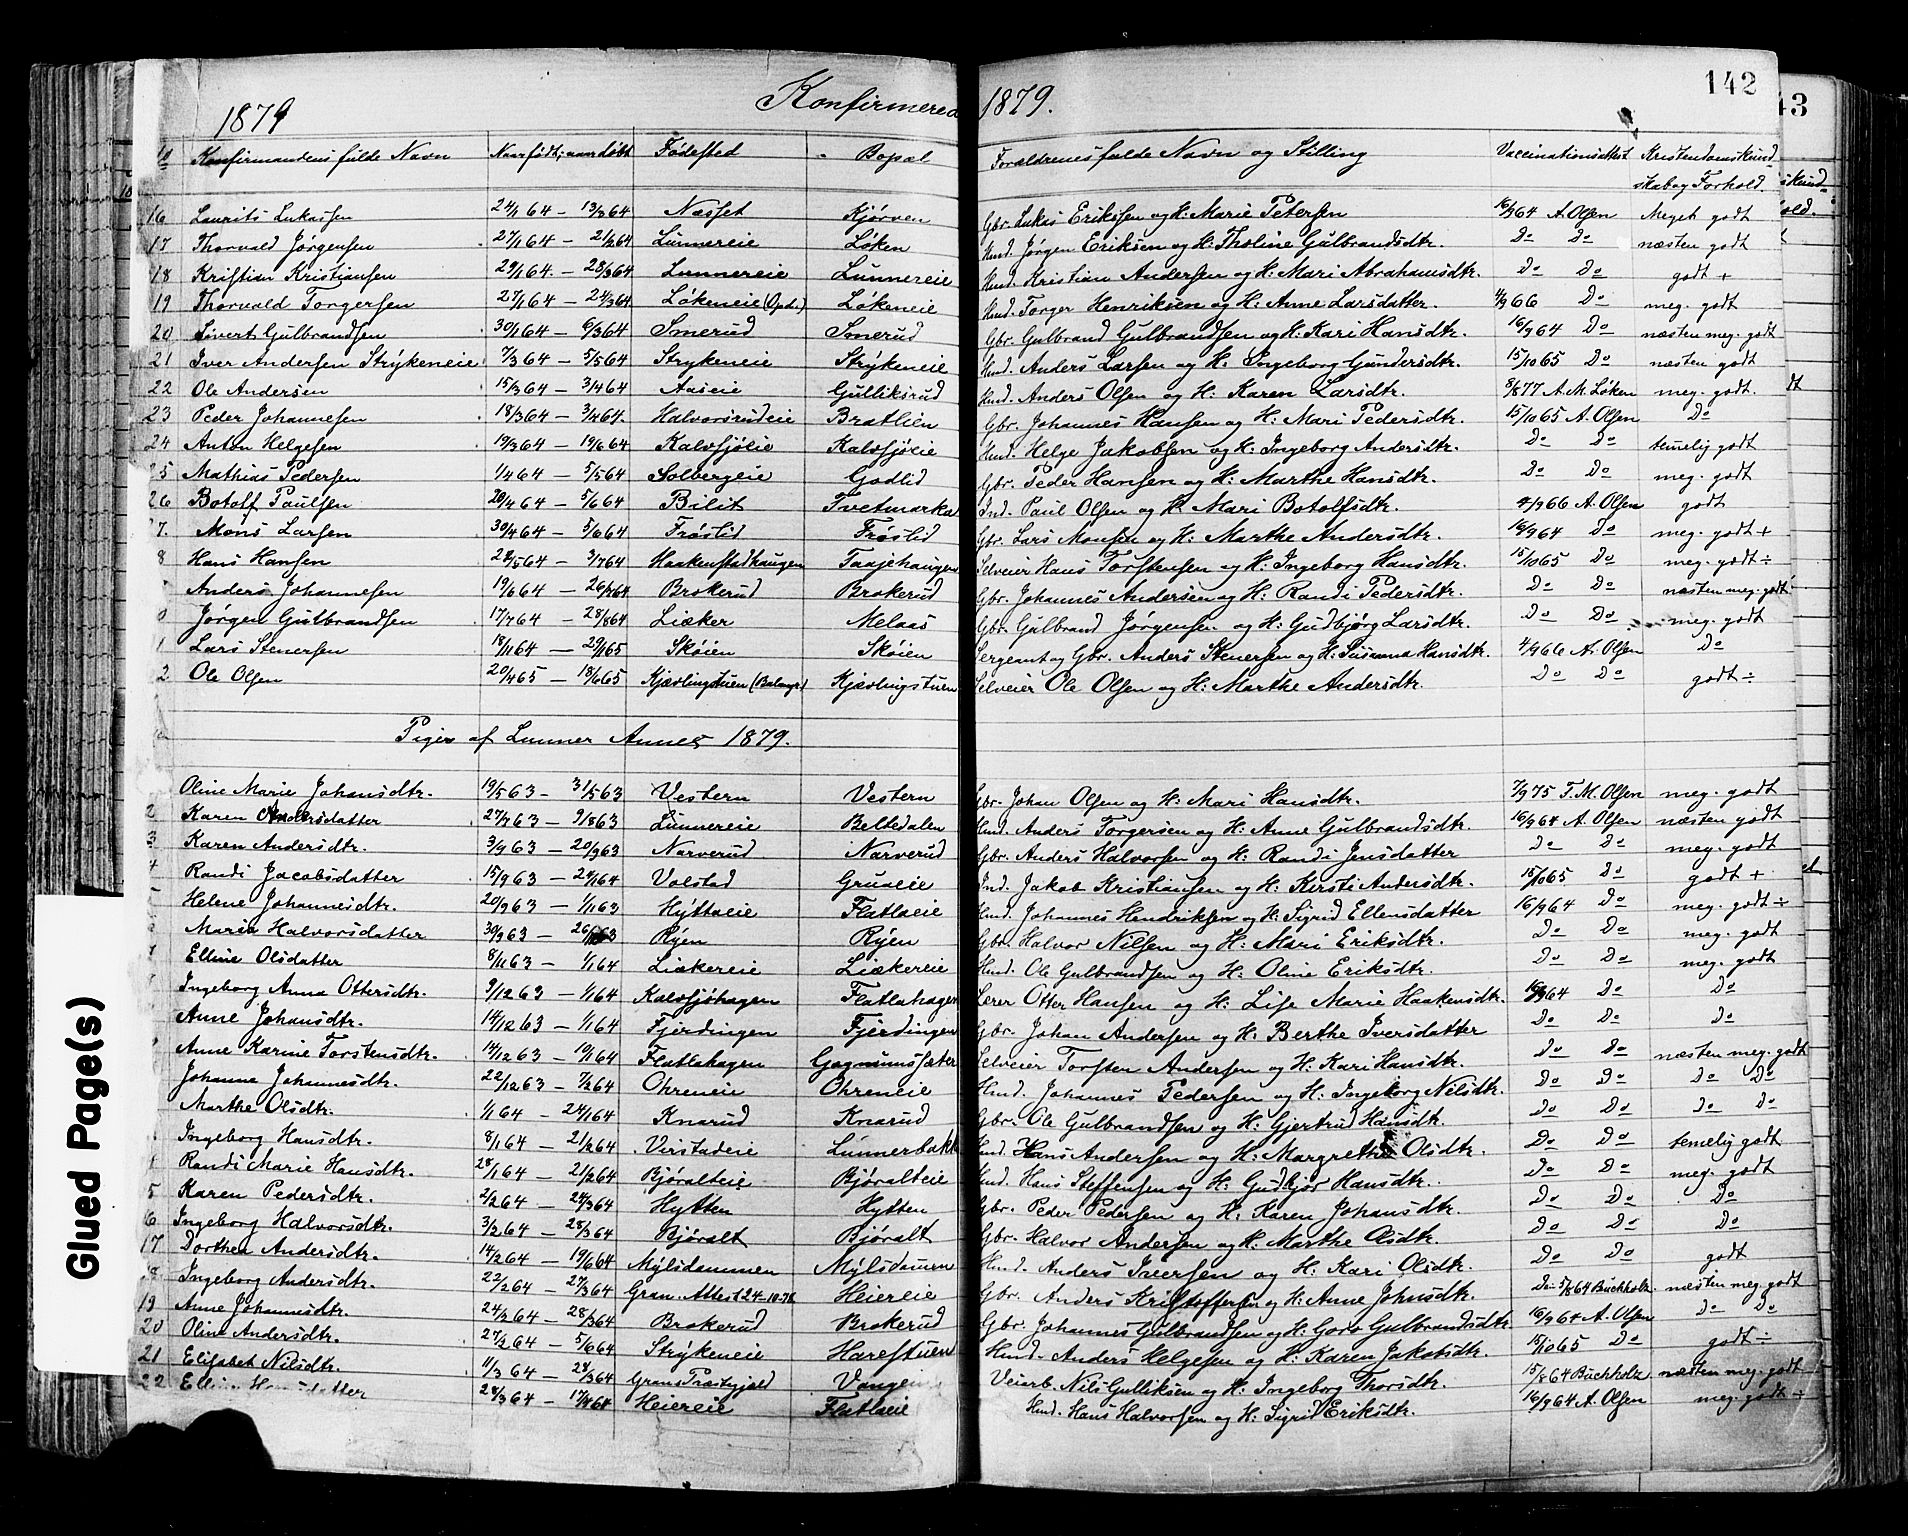 142
43
1879 Konfirmerede 1879.
No Konfirmandens fulde Navn Naar født, naar døbt Fødested Bopæl Forældrenes fulde Navn og Stilling Vaccinationsattest Kristendomskund-
skab og Forhold.
16 Laurits Lukassen 24/1 64 – 13/3 64 Næsset Kjørven Gbr. Lukas Erikssen og H: Marie Petersen 16/9 64 A. Olsen Meget godt
17 Thorvald Jørgensen 27/1 64 – 21/2 64 Lunnereie Løken Hmd. Jørgen Eriksen og H: Tholine Gulbrandsdtr. Do Do næsten godt
18 Kristian Kristiansen 29/1 64. – 28/3 64 Lunnereie Lunnereie Hmd. Kristian Andersen og H: Mari Abrahamsdtr. Do Do godt +
19 Thorvald Torgersen 27/1 64 – 24/3 64 Løkeneie (Opd.) Løkeneie Hmd. Torger Henriksen og H: Anne Larsdatter. 4/9 66 Do meg. godt
20 Sivert Gulbrandsen 30/1 64 – 6/3 64 Smerud Smerud Gbr. Gulbrand Gulbrandsen og H: Kari Hansdtr. 16/9 64 Do næsten meg. godt
21 Iver Andersen Strykeneie 7/3 64 – 5/5 64 Strykeneie Strykeneie Hmd. Anders Larsen og H. Ingeborg Gundersdtr. 15/10 65 Do næsten godt
22 Ole Andersen 15/3 64 – 3/4 64 Aaseie Gulliksrud Hmd. Anders Olsen og H: Karen Larsdtr. 8/8 77 A. M. Løken meg. godt.
23 Peder Johannesen 18/3 64 – 3/4 64. Halvorsrudeie Bratlien Gbr. Johannes Hansen og H: Mari Pedersdtr. 15/10 65 A. Olsen Do
24 Anton Helgesen 19/3 64 – 19/6 64 Kalvsjøeie Kalvsjøeie Hmd. Helge Jakobsen og H: Ingeborg Andersdtr. Do Do temelig godt
25 Mathias Pedersen 1/4 64 – 5/5 64 Solbergeie Godlid Gbr. Peder Hansen og H: Marthe Hansdtr. Do Do meg. godt
26 Botolf Paulsen 20/4 64 – 5/6 64 Bilit Tvetmarka Ind. Paul Olsen og H. Mari Botolfsdtr. 4/9 66 A. Olsen godt
7. Mons Larsen 30/4 64 – 5/6 64 Frøslid Frøslid Gbr. Lars Monsen og H: Marthe Andersdtr. 16/9 64 Do meg. godt +
8 Hans Hansen 24/5 64 – 3/7 64 Haakenstadhaugen Taajehaugen Selveier Hans Torstensen og H: Ingeborg Hansdtr. 15/10 65 Do meg. godt ÷
Anders Johannesen 19/6 64 – 26/7 64 Brokerud Brokerud Gbr. Johannes Andersen og H: Randi Pedersdtr. Do Do næsten meg. godt
0 Jørgen Gulbrandsen 17/7 64 – 28/8 64 Liæker Melaas Gbr. Gulbrand Jørgensen og H: Gudbjørg Larsdtr. Do Do meg. godt
1 Lars Stenersen 18/11 64 – 29/1 65 Skøien Skøien Sergeant og Gbr. Anders Stenersen og H: Susanna Hansdtr. 4/9 66 A. Olsen Do
2 Ole Olsen 20/4 65 – 18/6 65 Kjævlingstuen (Balangr.) Kjævlingstuen Selveier Ole Olsen og H: Marthe Andersdtr. Do Do godt ÷
Piger af Lunner Annex 1879.
Oline Marie Johansdtr. 19/5 63 – 31/5 63 Vestern Vestern Gbr. Johan Olsen og H: Mari Hansdtr. 7/9 75 T. M. Olsen meg. godt
2 Karen Andersdatter 27/7 63 – 9/8 63 Lunnereie Beltedalen Hmd. Anders Torgersen og H: Anne Gulbrandsdtr. 16/9 64 A. Olsen næsten godt
3 Karen Andersdtr. 3/9 63 – 20/9 63 Narverud Narverud Gbr. Anders Halvorsen og H: Randi Jensdatter Do Do meg. godt
4 Randi Jacobsdatter 15/9 63 – 24/1 64 Volstad Grualeie Ind. Jakob Kristiansen og H: Kirsti Andersdtr. 15/10 65 Do godt +
5 Helene Johannesdtr. 20/9 63 – 1/11 63 Hyttaeie Flatlaeie Hmd. Johannes Hendriksen og H: Sigrid Ellensdatter 16/9 64 Do meg. godt ÷
Maria Halvorsdatter 30/9 63 – 26/12 63 Ryen Ryen Gbr. Halvor Nilsen og H: Mari Eriksdtr. Do Do meg. godt
Elline Olsdatter 8/11 63 – 1/1 64 Liækereie Liækereie Hmd. Ole Gulbrandsen og H: Oline Eriksdtr. Do Do meg. godt
Ingeborg Anna Ottersdtr. 9/12 63 – 1/1 64 Kalvsjøhagen Flatlahagen Lærer Otter Hansen og H: Lise Marie Haakensdtr. 16/9 64 Do Do
Anne Johansdtr. 14/12 63 – 1/1 64 Fjerdingen Fjerdingen Gbr. Johan Andersen og H: Berthe Iversdatter Do Do Do
Anne Karine Torstensdtr. 14/12 63 – 10/1 64 Flatlahagen Gagnumsæter Selveier Torsten Andersen og H: Kari Hansdtr. Do Do næsten meg. godt
Johanne Johannesdtr. 22/12 63 – 7/2 64 Ohreneie Ohreneie Hmd. Johannes Pedersen og H: Ingeborg Nilsdtr. Do Do Do Do
Marthe Olsdtr. 1/1 64 – 24/1 64 Knarud Knarud Gbr. Ole Gulbrandsen og H: Gjertrud Hansdtr. Do Do Do Do
Ingeborg Hansdtr. 8/1 64 – 21/2 64 Virstadeie Lunnerbakk Hmd. Hans Andersen og H: Margrethe Olsdtr. Do Do temelig godt
Randi Marie Hansdtr. 28/1 64 – 21/2 64 Bjøralteie Bjøralteie Hmd. Hans Steffensen og H: Gudbjør Hansdtr. Do Do meg. godt
5 Karen Pedersdtr. 2/2 64 – 24/3 64 Hytten Hytten Gbr. Peder Pedersen og H: Karen Johansdtr. Do Do Do
6 Ingeborg Halvorsdtr. 3/2 64 – 28/3 64 Bjøralt Bjøralt Gbr. Halvor Andersen og H: Marthe Olsdtr. Do Do Do
17 Dorthea Andersdtr. 14/2 64 – 19/6 64 Mylsdammen Mylsdammen Hmd. Anders Iversen og H: Kari Olsdtr. Do Do godt
18 Ingeborg Andersdtr. 22/2 64 – 27/3 64 Gran. Attest 24-10-78 Heiereie Gbr. Anders Kristoffersen og H: Anne Johnsdtr. Do 5/8 64 Buchholz næsten meg. godt
19 Anne Johannesdtr. 24/2 64 – 28/3 64 Brokerud Brokerud Gbr. Johannes Gulbrandsen og H: Goro Gulbrandsdtr 16/9 64 A. Olsen Do Do
20 Oline Andersdtr. 27/2 64 – 5/6 64 Strykeneie Harestuen Hmd. Anders Helgesen og H: Karen Jakobsdtr. 15/10 65 Do godt ÷
21 Elisabet Nilsdtr. 11/3 64 – 28/3 64 Grans Præstegjeld Vangen Veiarb. Nils Gulliksen og H: Ingeborg Thorsdtr. 15/8 64 Buchholz næsten meg. godt
22 Elline Hansdatter 28/3 64 – 17/4 64 Heiereie Flatlaeie Hmd. Hans Halvorsen og H: Sigrid Eriksdtr. 16/9 64 A. Olsen meg. godt ÷
Glued Page(s)